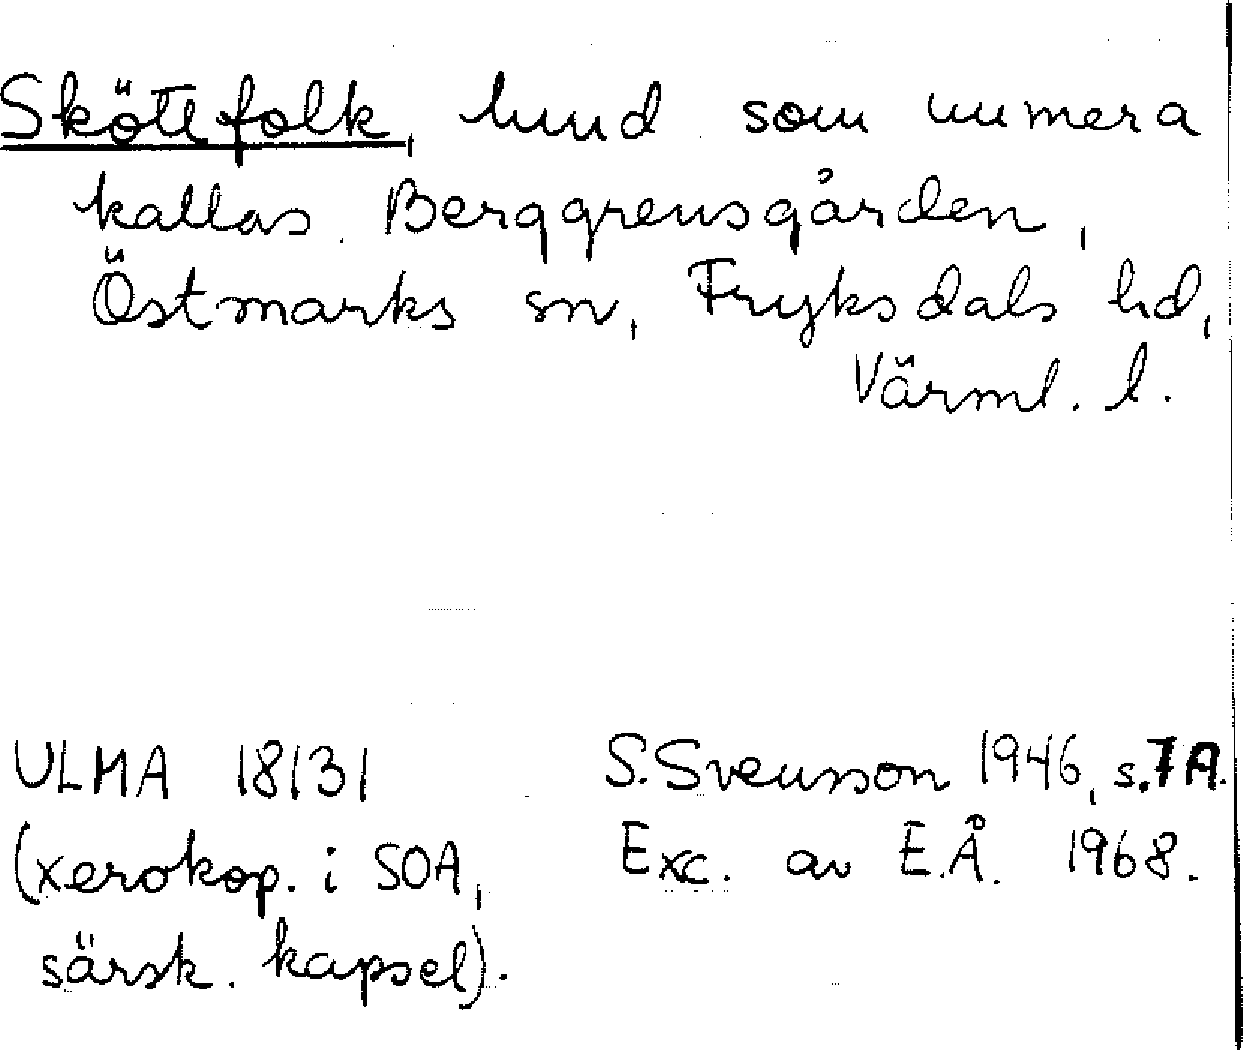 Sköttefolk, lund som numera
kallas Berggrensgården,
Östmarks sn, Fryksdals hd,
Värml. l.
ULMA 18131
(xerokop. i SOA,
särsk. kapsel).
S. Svensson 1946, s. 7 A.
Exc. av E.Å. 1968.